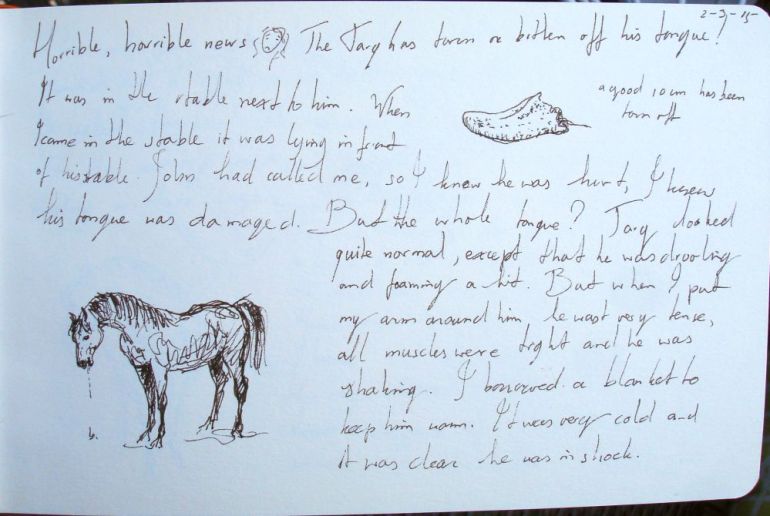 2-3-15
Horrible, horrible news The Targ has torn or bitten off his tongue!
It was in the stable next to him. When
a good 10 cm has been
torn off
I came in the stable it was lying in front
of his stable. John had called me, so I knew he was hurt, I knew
his tongue was damaged. But the whole tongue? Targ looked
quite normal, except that he was drooling
and foaming a bit. But when I put
my arm around him he wast very tense,
all muscles were tight and he was
shaking. I borrowed a blanket to
keep him warm. It was very cold and
it was clear he was in shock.